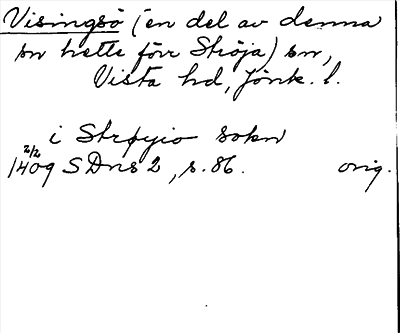 Visingsö (en del av denna
sn hette förr Ströja) sn,
Vista hd, Jönk. l.
i Strøyio sokn
2/2
1409 SDns 2, s. 86. orig.